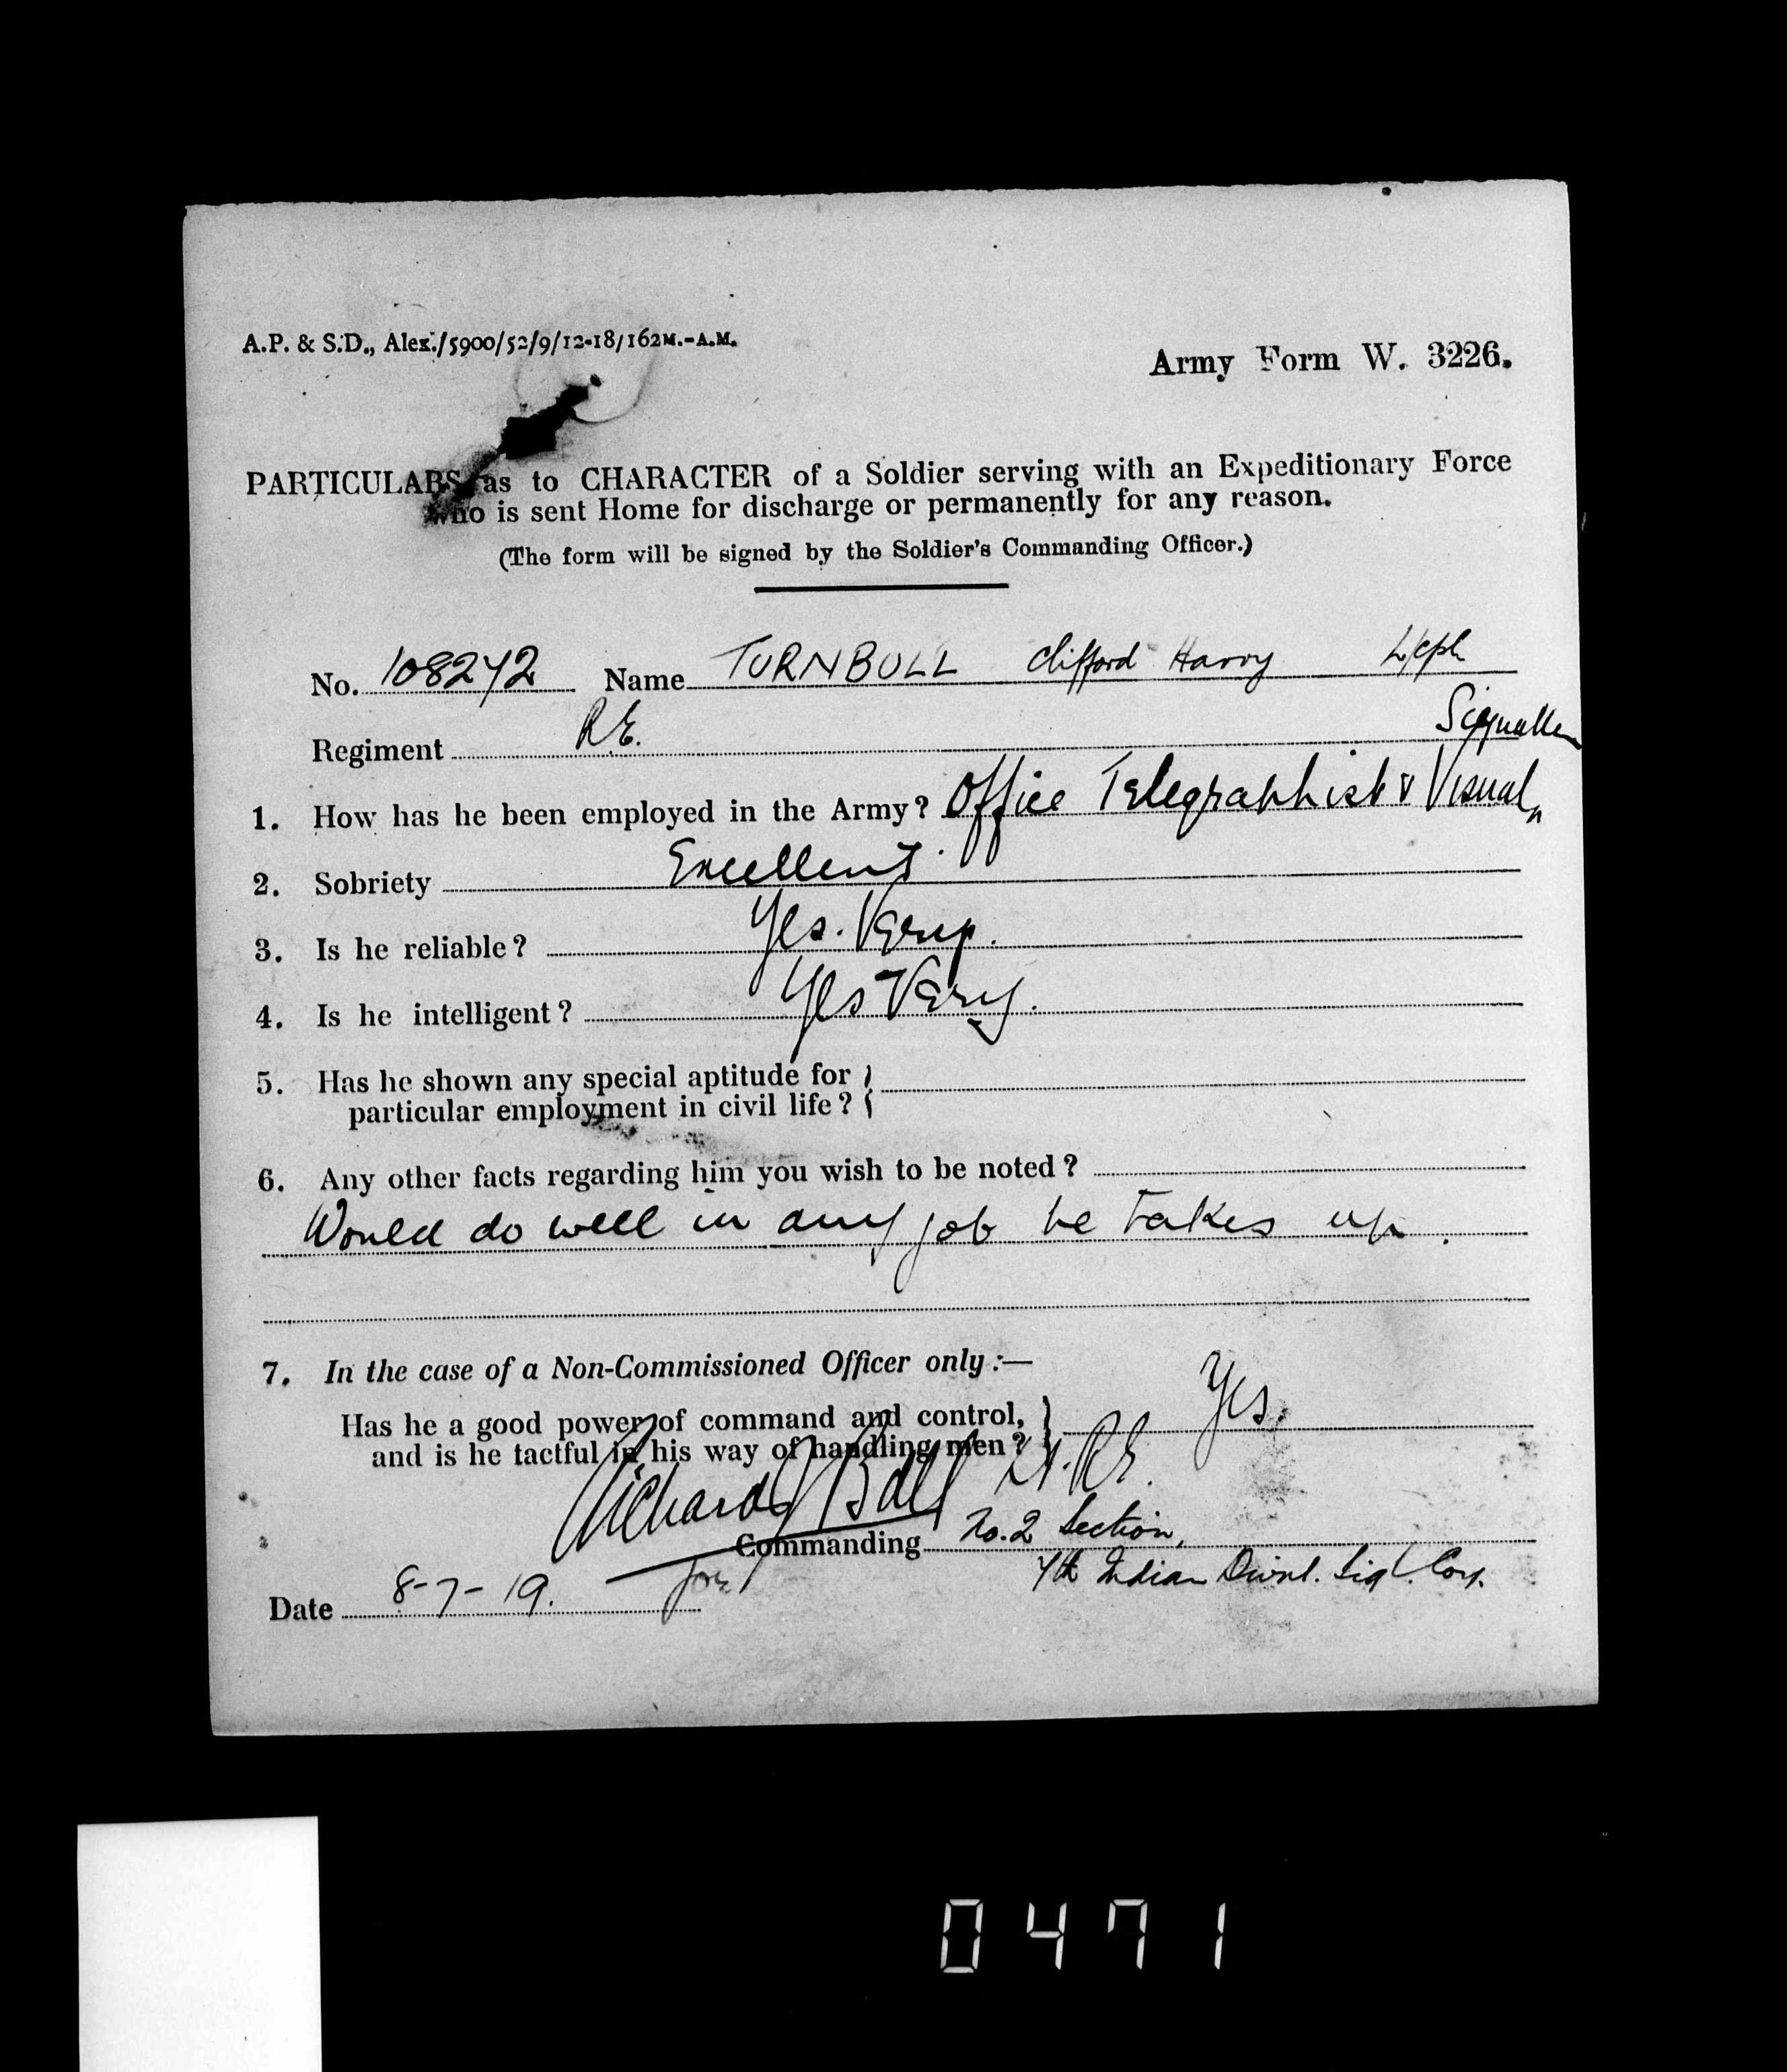 A.P. & S.D., Alex./5900/52/9/12-18/162M.-A.M.
Army Form W. 3226.
PARTICULARS as to CHARACTER of a Soldier serving with an Expeditionary Force
who is sent Home for discharge or permanently for any reason.
(The form will be signed by the Soldier's Commanding Officer.)
No. 108272 Name TURNBULL Clifford Harry L/Cpl
Regiment R.E. Signaller
1. How has he been employed in the Army? Office Telegraphist & Visual
2. Sobriety Excellent.
3. Is he reliable? Yes. Very.
4. Is he intelligent? Yes Very.
5. Has he shown any special aptitude for
particular employment in civil life?
6. Any other facts regarding him you wish to be noted?
Would do well in any job he takes up.
7. In the case of a Non-Commissioned Officer only:—
Yes.
Has he a good power of command and control,
and is he tactful in his way of handling men?
Richard Ball Lt. R.E.
Commanding No. 2 Section,
7th Indian Divnl. Sigl. Coy.
Date 8-7-19. for
0471